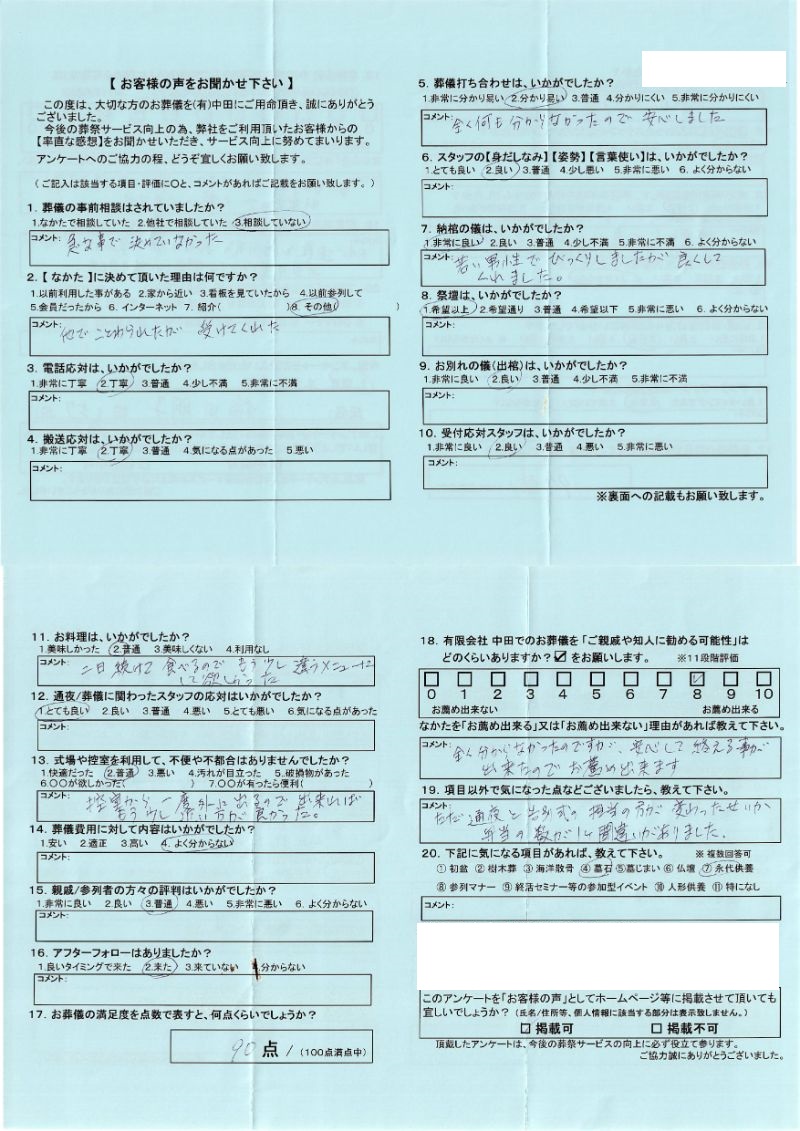 【 お客様の声をお聞かせ下さい 】
この度は、大切な方のお葬儀を(有)中田にご用命頂き、誠にありがとう
ございました。
今後の葬祭サービス向上の為、弊社をご利用頂いたお客様からの
【率直な感想】をお聞かせいただき、サービス向上に努めてまいります。
アンケートへのご協力の程、どうぞ宜しくお願い致します。
( ご記入は該当する項目・評価に○と、コメントがあればご記載をお願い致します。 )
1. 葬儀の事前相談はされていましたか？
1.なかたで相談していた 2.他社で相談していた 3.相談していない
コメント: 急な事で 決めていなかった
2.【 なかた 】に決めて頂いた理由は何ですか？
1.以前利用した事がある 2.家から近い 3.看板を見ていたから 4.以前参列して
5.会員だったから 6. インターネット 7. 紹介( )8. その他( )
コメント: 他で ことわられたが 受けてくれた
3. 電話応対は、いかがでしたか？
1.非常に丁寧 2.丁寧 3.普通 4.少し不満 5.非常に不満
コメント:
4. 搬送応対は、いかがでしたか？
1.非常に丁寧 2.丁寧 3.普通 4.気になる点があった 5.悪い
コメント:
5. 葬儀打ち合わせは、いかがでしたか？
1.非常に分かり易い 2.分かり易い 3.普通 4.分かりにくい 5.非常に分かりにくい
コメント: 全く何も分からなかったので 安心しました
6. スタッフの【身だしなみ】【姿勢】【言葉使い】は、いかがでしたか？
1.とても良い 2.良い 3.普通 4.少し悪い 5.非常に悪い 6. よく分からない
コメント:
7. 納棺の儀は、いかがでしたか？
1.非常に良い 2.良い 3.普通 4.少し不満 5.非常に不満 6. よく分からない
コメント: 若い男性で びっくりしましたが 良くして
くれました。
8. 祭壇は、いかがでしたか？
1.希望以上 2.希望通り 3.普通 4.希望以下 5.非常に悪い 6. よく分からない
コメント:
9. お別れの儀(出棺)は、いかがでしたか？
1.非常に良い 2.良い 3.普通 4.少し不満 5.非常に不満
コメント:
10. 受付応対スタッフは、いかがでしたか？
1.非常に良い 2.良い 3.普通 4.悪い 5.非常に悪い
コメント:
※裏面への記載もお願い致します。
11. お料理は、いかがでしたか？
1.美味しかった 2.普通 3.美味しくない 4.利用なし
コメント: 二日続けて 食べるので もう少し違うメニューに
して欲しかった
12. 通夜/葬儀に関わったスタッフの応対はいかがでしたか？
1.とても良い 2.良い 3.普通 4.悪い 5.とても悪い 6.気になる点があった
コメント:
13. 式場や控室を利用して、不便や不都合はありませんでしたか？
1.快適だった 2.普通 3.悪い 4.汚れが目立った 5.破損物があった
6.○○が欲しかった( ) 7.○○が有ったら便利( )
コメント: 控室から、一度外に出るので 出来れば
もう少し 近い方が良かった。
14. 葬儀費用に対して内容はいかがでしたか？
1.安い 2.適正 3.高い 4. よく分からない
コメント:
15. 親戚/参列者の方々の評判はいかがでしたか？
1.非常に良い 2.良い 3.普通 4.悪い 5.非常に悪い 6. よく分からない
コメント:
16. アフターフォローはありましたか？
1.良いタイミングで来た 2.来た 3.来ていない 4.分からない
コメント:
17. お葬儀の満足度を点数で表すと、何点くらいでしょうか？
90 点 / (100点満点中)
18. 有限会社 中田でのお葬儀を「ご親戚や知人に勧める可能性」は
どのくらいありますか？☑ をお願いします。 ※11段階評価
0 1 2 3 4 5 6 7 8 9 10
お薦め出来ない お薦め出来る
なかたを「お薦め出来る」又は「お薦め出来ない」理由があれば教えて下さい。
コメント: 全く分からなかったのですが、安心して 終える事が
出来たので お薦め出来ます
19. 項目以外で気になった点などございましたら、教えて下さい。
コメント: ただ通夜と告別式の 担当の方が 変わったせいか
弁当の数が 間違いがありました。
20. 下記に気になる項目があれば、教えて下さい。 ※ 複数回答可
① 初盆 ② 樹木葬 ③ 海洋散骨 ④ 墓石 ⑤ 墓じまい ⑥ 仏壇 ⑦ 永代供養
⑧ 参列マナー ⑨ 終活セミナー等の参加型イベント ⑩ 人形供養 ⑪ 特になし
コメント:
このアンケートを「お客様の声」としてホームページ等に掲載させて頂いても
宜しいでしょうか？ (氏名/住所等、個人情報に該当する部分は表示致しません。)
☑ 掲載可 □ 掲載不可
頂戴したアンケートは、今後の葬祭サービスの向上に必ず役立て参ります。
ご協力誠にありがとうございました。